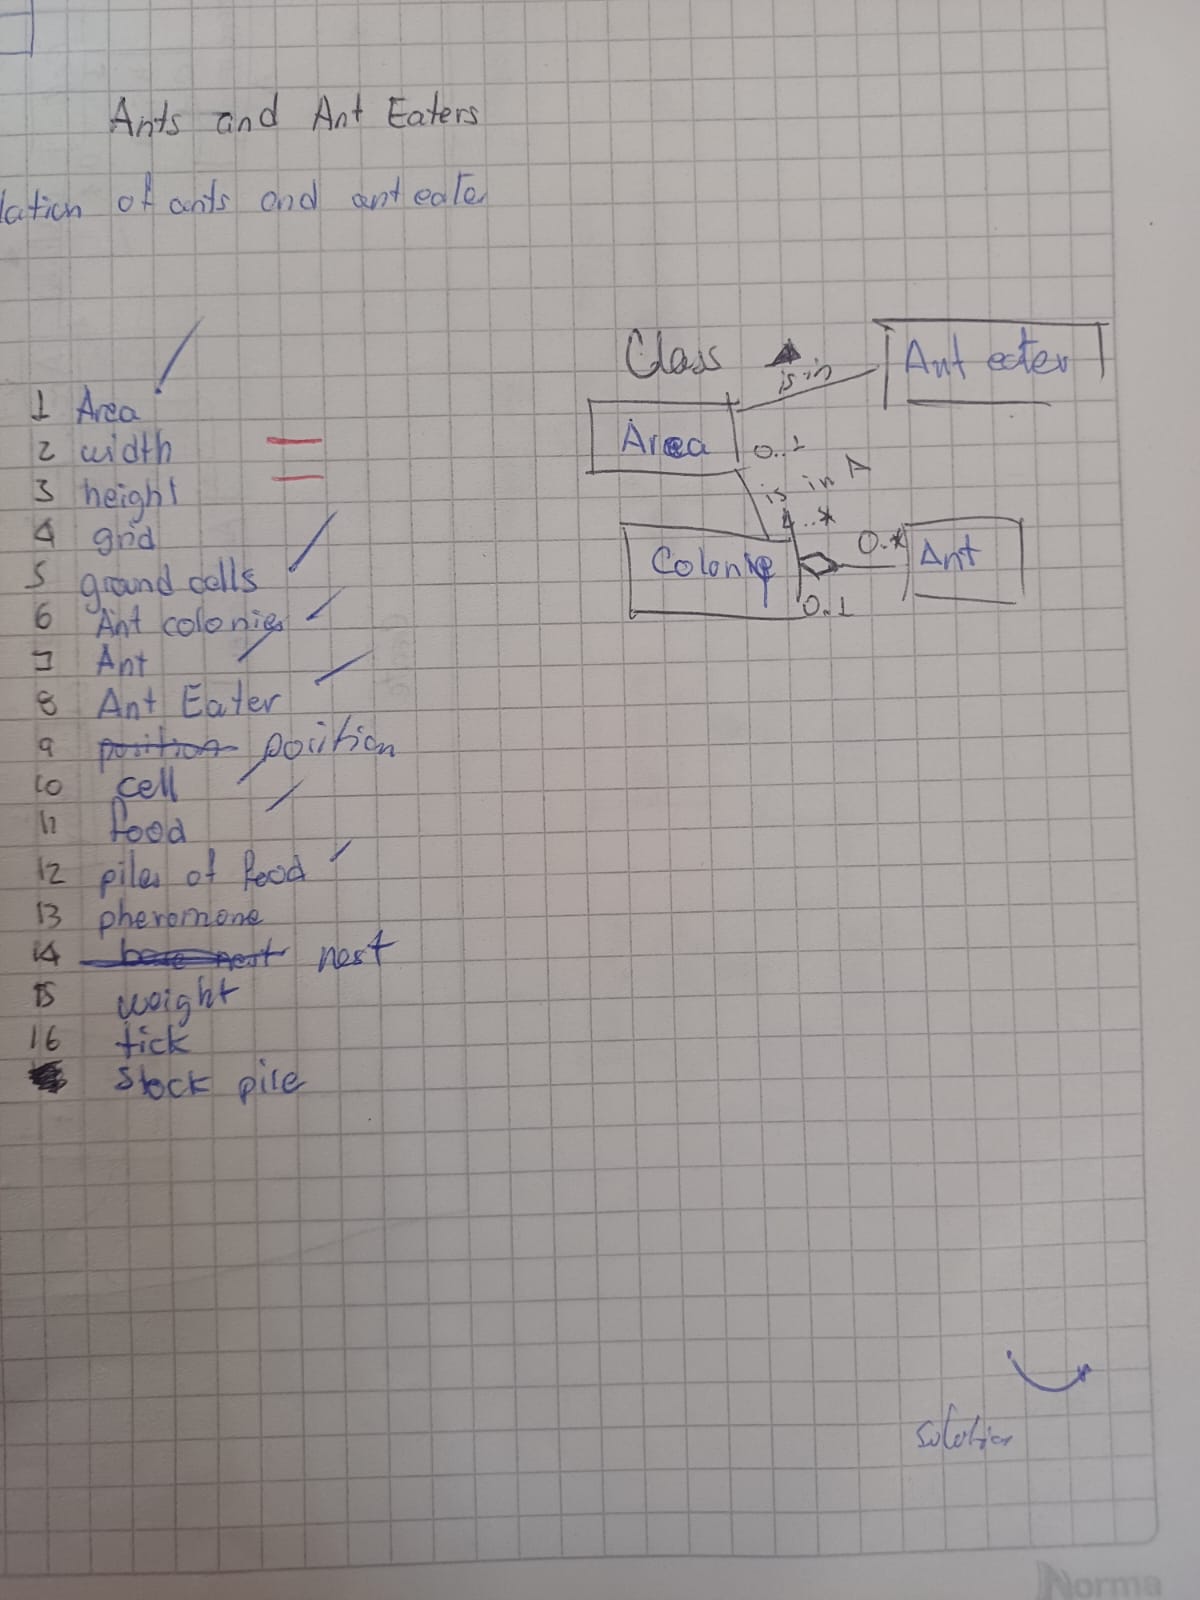 Ants and Ant Eaters
lation of ants and ant eater
1 Area
2 width
3 height
4 grid
5 ground cells
6 Ant colonies
7 Ant
8 Ant Eater
9 position position
10 cell
11 food
12 piles of food
13 pheromone
14 base nest nest
15 weight
16 tick
stock pile
Class
is in
Ant eater
Area
0..1
is in
1..*
Colonie
0..*
Ant
0..1
solution
Norma